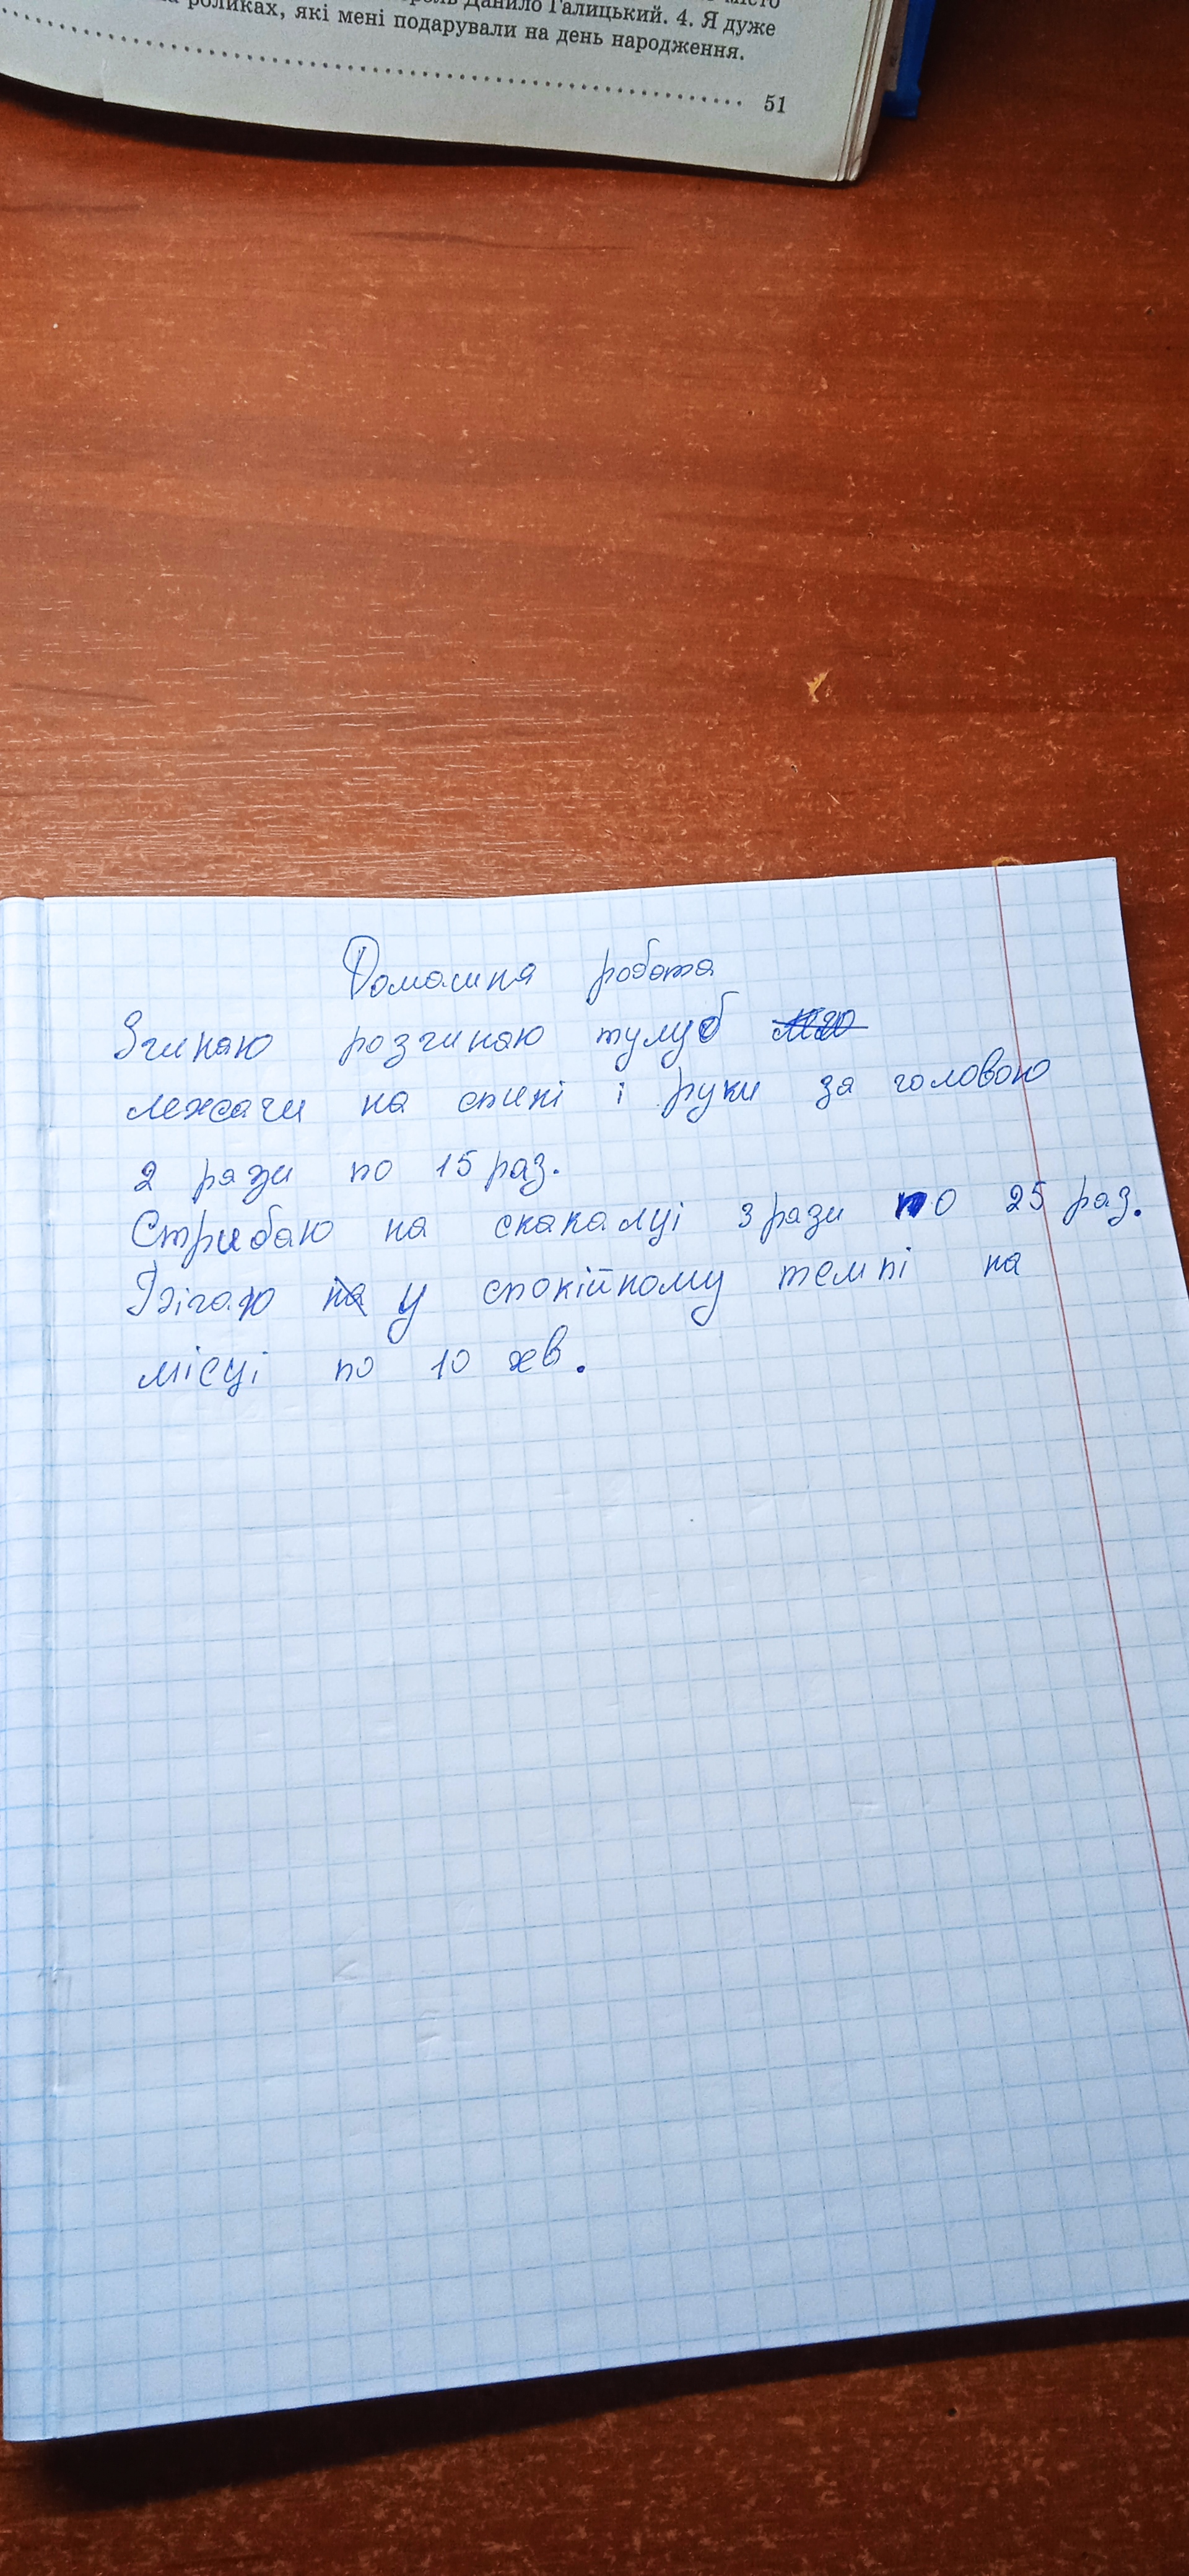 місто
роль Данило Галицький. 4. Я дуже
на роликах, які мені подарували на день народження.
51
Домашня робота
Згинаю розгинаю тулуб
лежачи на спині і руки за головою
2 рази по 15 раз.
Стрибаю на скакалці 3 рази по 25 раз.
Бігаю на у спокійному темпі на
місці по 10 хв.